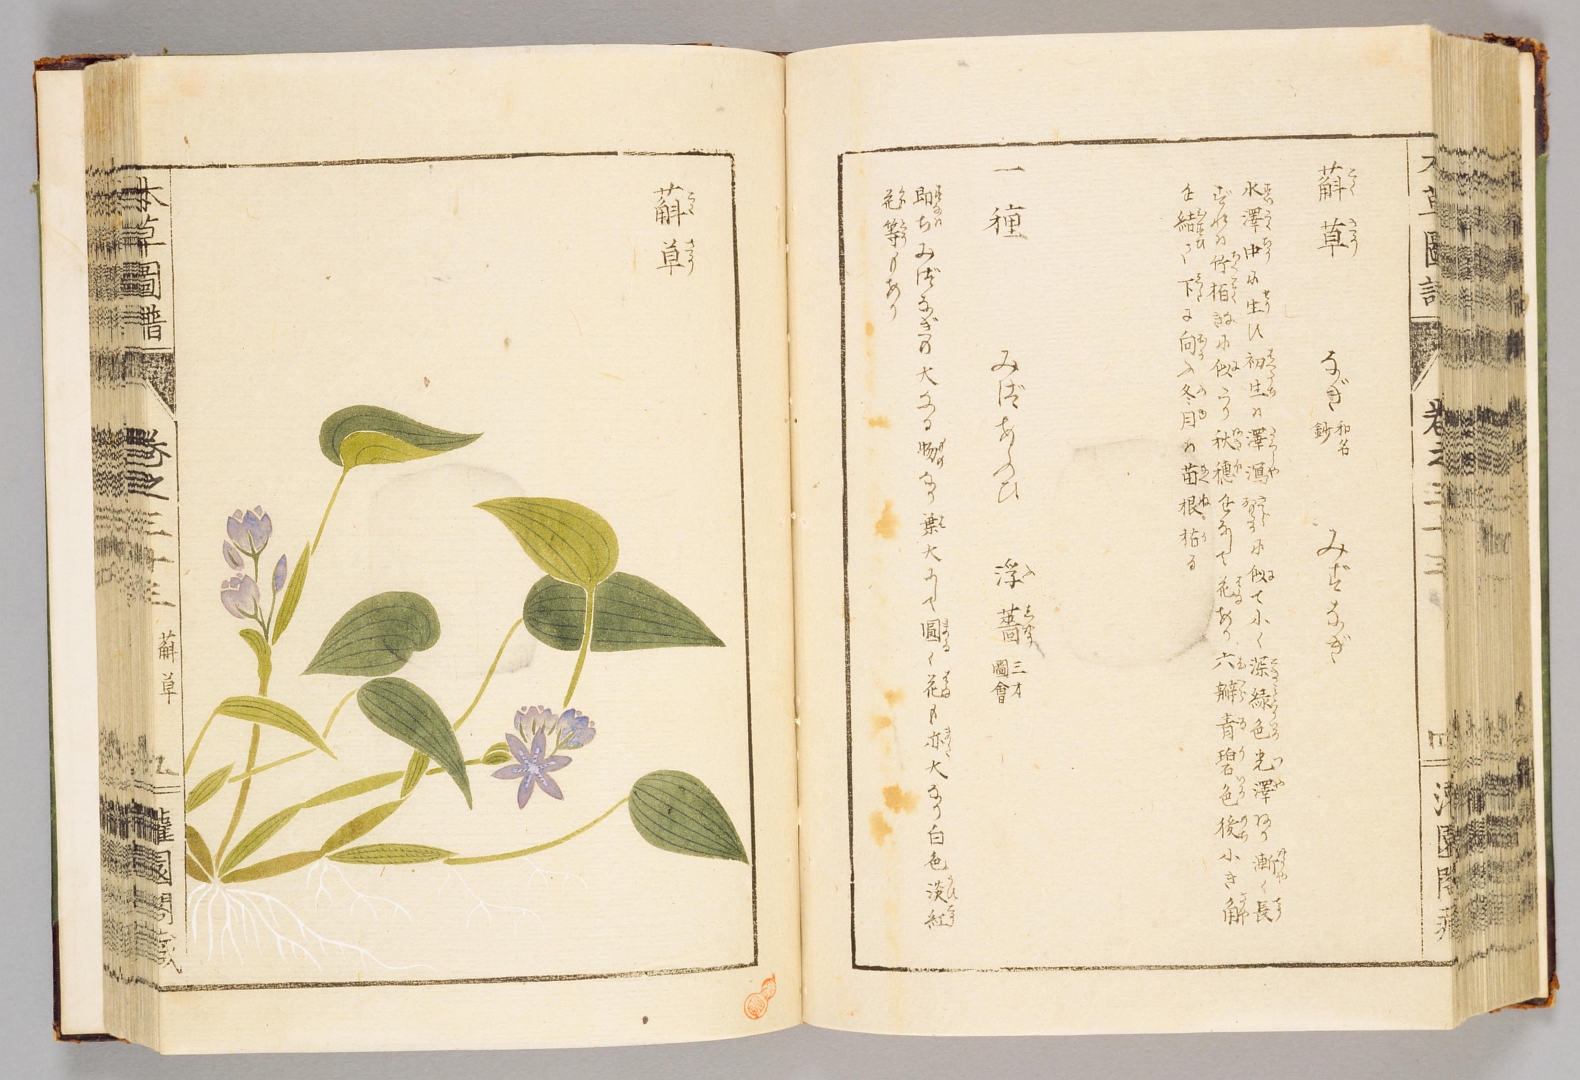 蔛草 なぎ 和名鈔 みずなぎ
水澤中に生ひ初生は澤瀉に似て小く深緑色光澤あり漸く長
ずれば竹柏の葉に似たり秋穂をなして花あり六瓣青碧色後小き角
を結び下に向ふ冬月は苗根枯る
一種 みづあふひ 浮薔 三才圖會
即ちみづなぎの大なる物なり葉大にして圓く花も亦大なり白色淡紅
花等もあり
蔛草
本草圖譜 巻之三十三 蔛草 九 灌園閣蔵